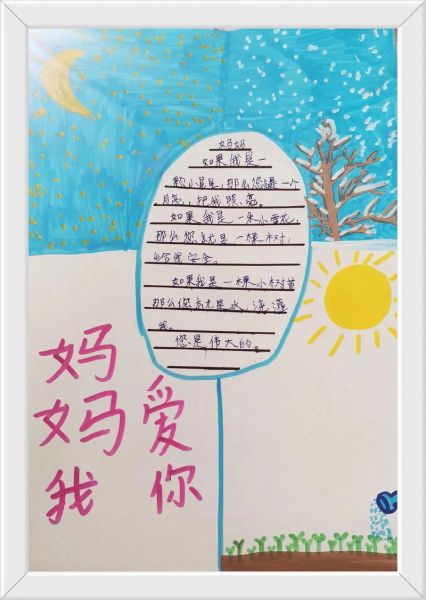 妈妈
如果我是一
颗小星星,那么您是一个
月亮,把我照亮。
如果我是一朵小雪花,
那么您就是一棵树,
给我安全。
如果我是一棵小树苗
那么您就是水,浇灌
我。
您是伟大的。
妈妈我
爱你